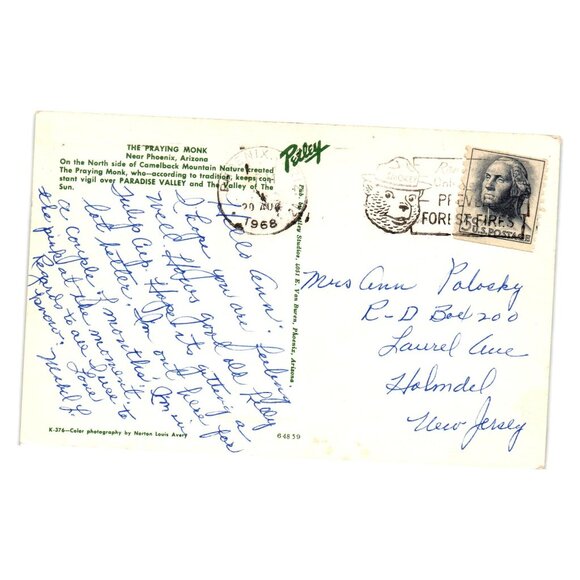 THE PRAYING MONK
Near Phoenix, Arizona
On the North side of Camelback Mountain Nature created
The Praying Monk, who—according to tradition, keeps con-
stant vigil over PARADISE VALLEY and The Valley of The
Sun.
Petley
20 AUG
1968
SMOKEY
PREVENT
FOREST FIRES
5¢ U.S. POSTAGE
Hello Ann:
I hope you are feeling
well. How's good old Play
Hope it's getting a
lot hotter. I'm out here for
a couple of months. I'm in
the pink at the moment.
Regards to all
Love
Pub. by Petley Studios, 4051 E. Van Buren, Phoenix, Arizona.
Mrs Ann Polosky
R-D Box 200
Laurel Ave
Holmdel
New Jersey
K-376—Color photography by Norton Louis Avery
64859